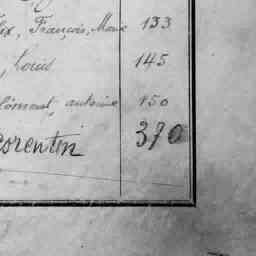 lix, François, Marie 133
, Louis 145
lément, antoine 150
Corentin 370